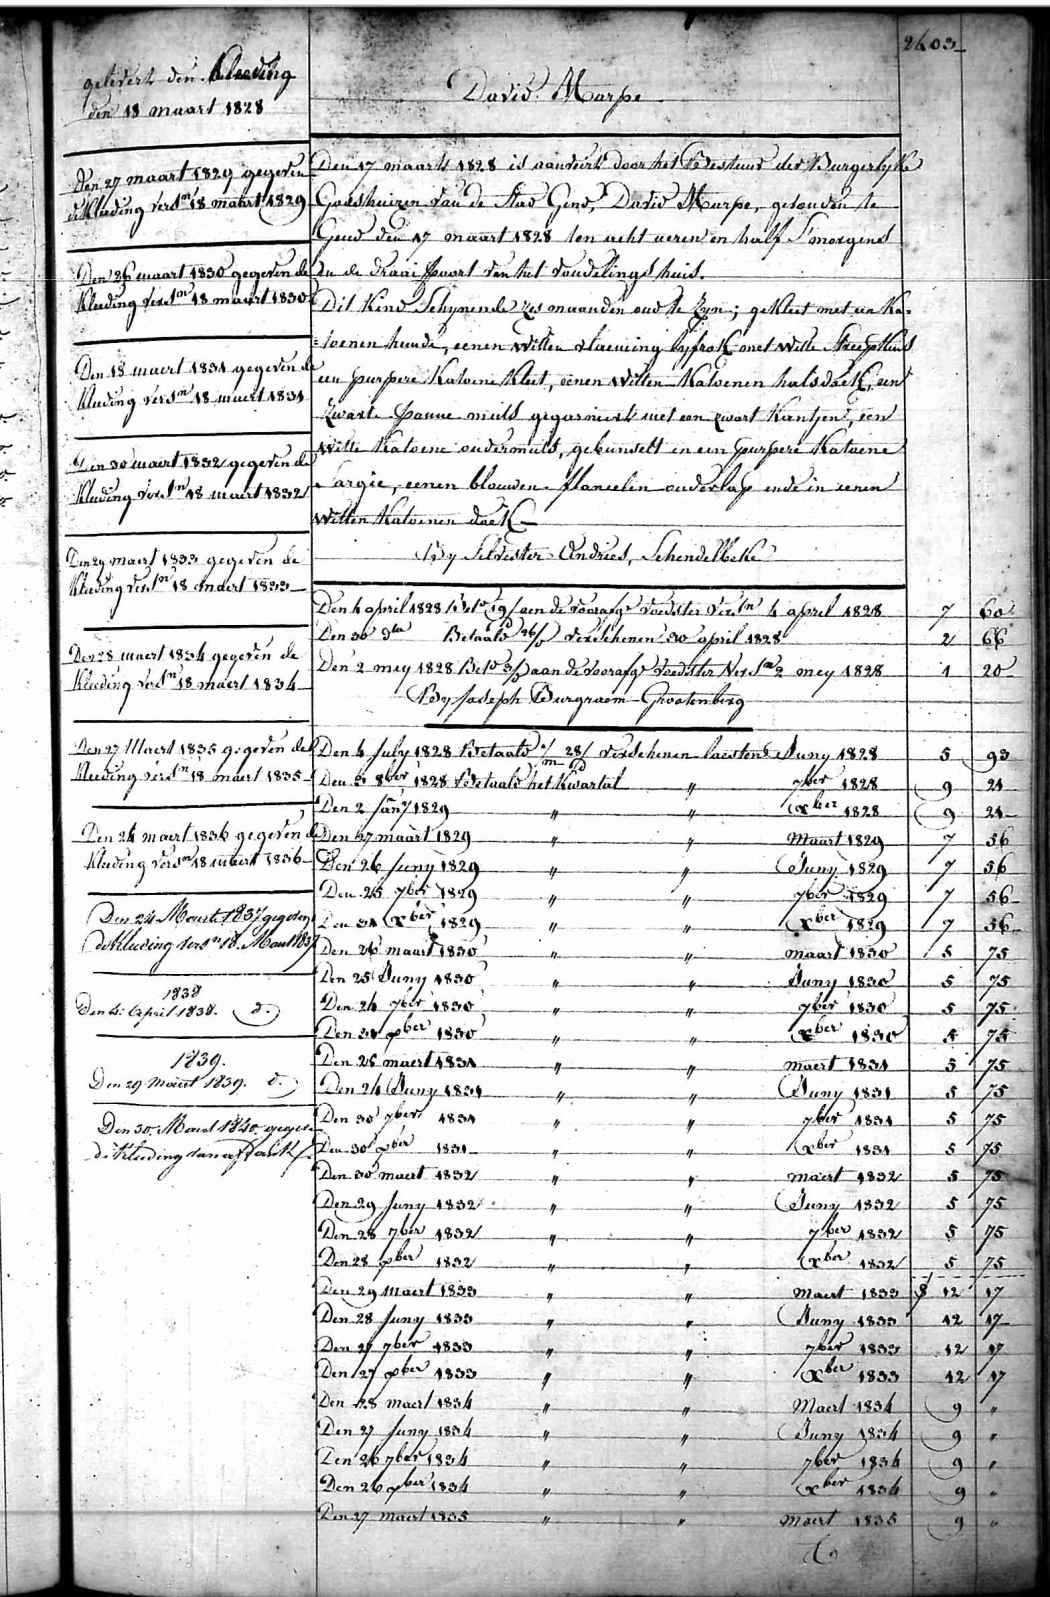 2603
gelevert den kleeding
den 18 maart 1828
Den 27 maart 1829 gegeven
de kleeding versn 18 maart 1829
Den 26 maart 1830 gegeven de
kleeding versn 18 maert 1830
Den 18 maert 1831 gegeven de
kleeding versn 18 maert 1831
Den 30 maert 1832 gegeven de
kleeding versn 18 maert 1832
Den 29 maert 1833 gegeven de
kleeding versn 18 maert 1833
Den 28 maert 1834 gegeven de
kleeding versn 18 maert 1834
Den 27 Maert 1835 gegeven de
kleeding versn 18 maert 1835
Den 24 maert 1836 gegeven de
kleeding versn 18 maert 1836
Den 24 Maart 1837 gegeven
de kleeding versn 18 Maart 1837
1838
Den 4 April 1838. d.
1839.
Den 29 Maert 1839. d.
Den 30 Maert 1840 gegeven
de kleeding van
David Marpe
Den 17 maart 1828 is aanveirt door het Bestuur der Burgerlyke
Godshuizen van de Stad Gend, David Marpe, gevonden te
Gend den 17 maart 1828 ten acht ueren en half S'morgens
in de draai poort van het vondelings huis.
Dit kind Schynende zes maanden oud te zyn; gekleet met een Ka=
=toenen hemde, eenen witten vlaeming lyfrok met witte
een purpere Katoene Kleet, eenen witten Katoenen halsdoek, een
zwart panne muts gegarniert met een zwart Kantjen, een
witte Katoene ondermuts, gebunselt in een purpere Katoene
Sargie, eenen blauwen flanelen onderlap ende in eenen
witten Katoenen doek
By Silvester Andries, Schendelbeke
Den 4 april 1828 Bet 19/ aen de voorafge voedster versn 4 april 1828 7 60
Den 30 dto Betaald 26/ verschenen 30 april 1828 2 66
Den 2 mey 1828 Bet 3/ aan de voorafge voedster Versn 2 mey 1828 1 20
By Joseph Burgraem Grootenberg
Den 4 July 1828 Betaald 28/ verschenen laesten Juny 1828 5 93
Den 3 8ber 1828 Betaald het Kwartal " 7ber 1828 9 24
Den 2 Jany 1829 " " Xber 1828 9 24
Den 27 maart 1829 " " Maart 1829 7 56
Den 26 Juny 1829 " " Juny 1829 7 56
Den 25 7ber 1829 " " 7ber 1829 7 56
Den 31 Xber 1829 " " Xber 1829 7 56
Den 26 maart 1830 " " maart 1830 5 75
Den 25 Juny 1830 " " Juny 1830 5 75
Den 24 7ber 1830 " " 7ber 1830 5 75
Den 31 Xber 1830 " " Xber 1830 5 75
Den 26 maert 1831 " " maert 1831 5 75
Den 24 Juny 1831 " " Juny 1831 5 75
Den 30 7ber 1831 " " 7ber 1831 5 75
Den 30 Xber 1831 " " Xber 1831 5 75
Den 30 maert 1832 " " maert 1832 5 75
Den 29 Juny 1832 " " Juny 1832 5 75
Den 28 7ber 1832 " " 7ber 1832 5 75
Den 28 Xber 1832 " " Xber 1832 5 75
Den 29 Maert 1833 " " Maert 1833 12 17
Den 28 Juny 1833 " " Juny 1833 12 17
Den 27 7ber 1833 " " 7ber 1833 12 17
Den 27 Xber 1833 " " Xber 1833 12 17
Den 28 maert 1834 " " Maert 1834 9 "
Den 27 Juny 1834 " " Juny 1834 9 "
Den 26 7ber 1834 " " 7ber 1834 9 "
Den 26 Xber 1834 " " Xber 1834 9 "
Den 27 maert 1835 " " maert 1835 9 "